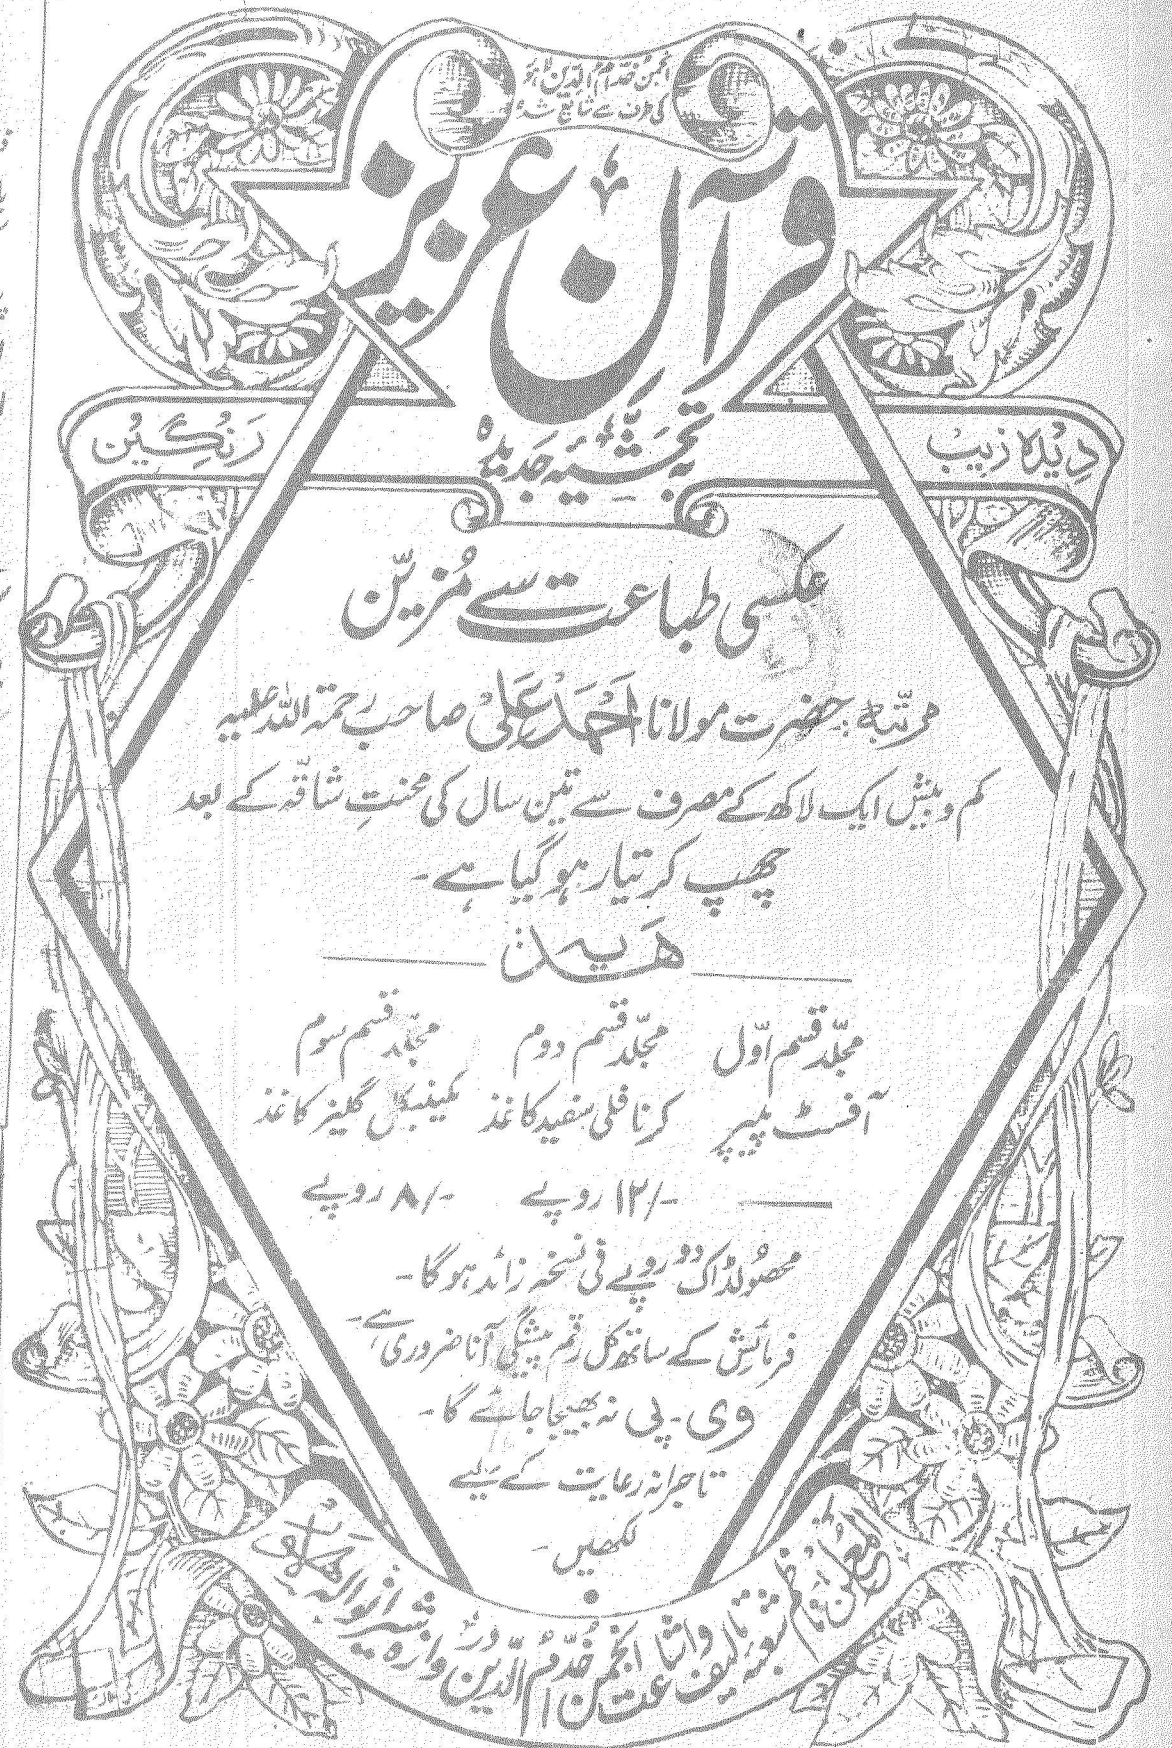 انجمن خدام الدین لاہور
کی طرف سے شائع شدہ
قرآن عزیز
دیدہ زیب
رنگین
بہ تحشیہ جدیدہ
عکسی طباعت سے مُزیّن
مرتبہ: حضرت مولانا احمد علی صاحب رحمۃ اللہ علیہ
کم و بیش ایک لاکھ کے مصرف سے تین سال کی محنتِ شاقّہ کے بعد
چھپ کر تیار ہو گیا ہے۔
ھدیہ
مجلّد قسم اوّل مجلّد قسم دوم مجلّد قسم سوم
آفسٹ پیپر کرنافلی سفید کاغذ مکینیکل گلیز کاغذ
۱۲/- روپے ۸/- روپے
محصولڈاک دو روپے فی نسخہ زائد ہوگا۔
فرمائش کے ساتھ کل رقم پیشگی آنا ضروری ہے۔
وی۔ پی نہ بھیجا جائے گا۔
تاجرانہ رعایت کے لیے
لکھیں۔
المعلن ناظم شعبہ تالیف و اشاعت انجمن خدّام الدّین دروازہ شیرانوالہ لاہور